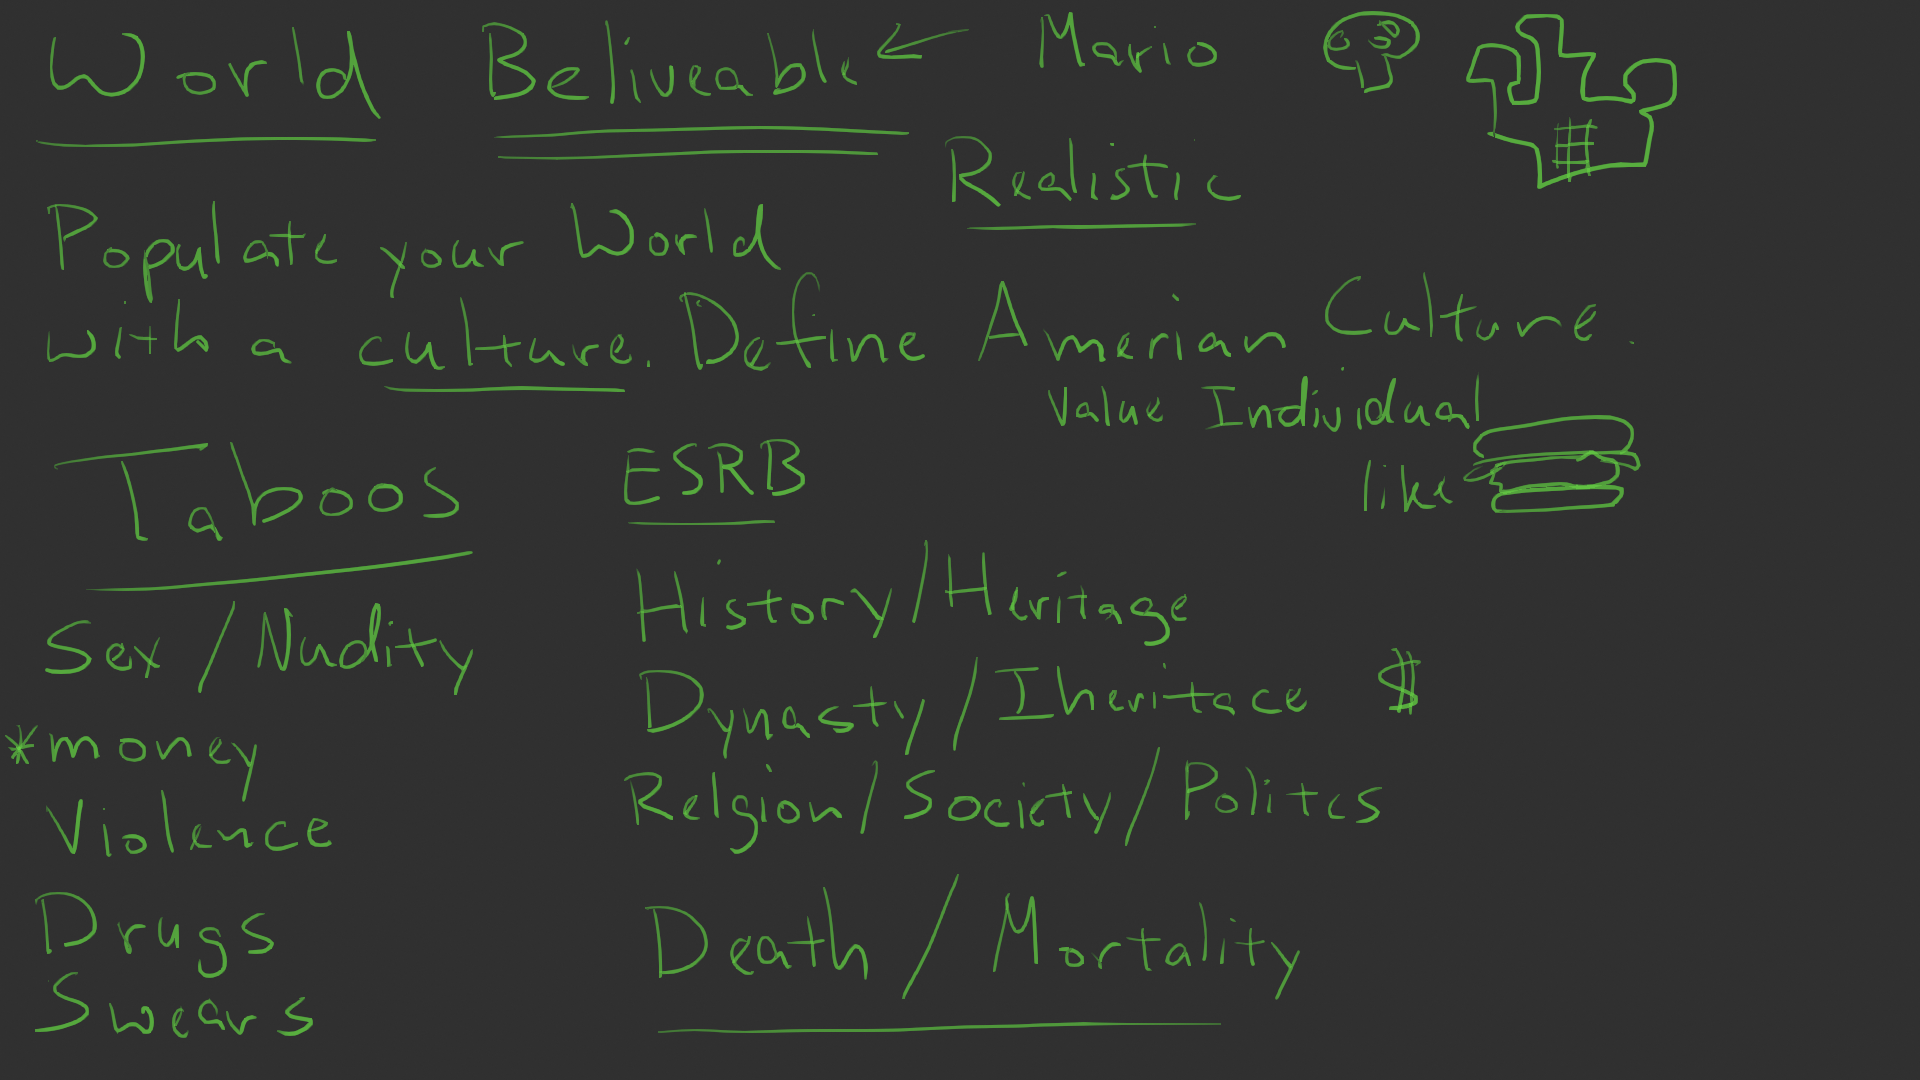 World Beliveable Mario
Realistic
Populate your World
with a culture. Define Amerian Culture.
Value Individual
like
Taboos
ESRB
Sex/Nudity
*money
Violence
Drugs
Swears
History/Heritage
Dynasty/Iheritace $
Relgion/Society/Politcs
Death/Mortality